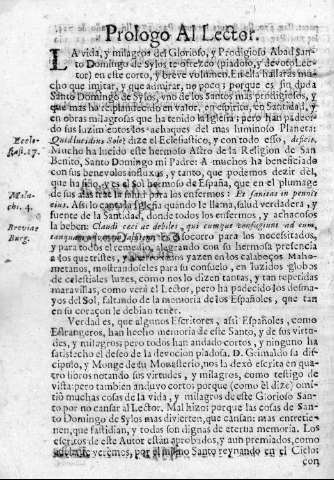 Prologo Al Lector.
LA vida, y milagros del Glorioso, y Prodigioso Abad San-
to Domingo de Sylos te ofrezco (piadoso, y devoto Lec-
tor) en este corto, y breve volumen. En ella hallaràs mu-
cho que imitar, y que admirar, no poco; porque es sin duda
Santo Domingo de Sylos, vno de los Santos mas prodigiosos, y
que mas ha resplandecido en valor, en espiritu, en Santidad, y
en obras milagrosas que ha tenido la Iglesia; pero han padeci-
do sus luzimientos los achaques del mas luminoso Planeta:
Eccle-
siast. 17.
Quid lucidius Sole? dize el Eclesiastico, y con todo esso,
Mucho ha lucido este hermoso Astro de la Religion de San
Benito, Santo Domingo mi Padre: A muchos ha beneficiado
con sus benevolos influxos, y tanto, que podemos dezir del,
que ha sido, y es el Sol hermoso de España, que en el plumage
de sus alas trae la salud para los enfermos: Et sanitas in pennis
Mala-
chi. 4.
eius. Assi lo canta la Iglesia quando le llama, salud verdadera, y
fuente de la Santidad, donde todos los enfermos, y achacosos
Breviar.
Burg.
la beben: Claudi ceci ac debiles, qui cumque confugiunt ad eum,
socorro para los necessitados,
y para todos el remedio, alegrando con su hermosa presencia
a los que tristes, y yazen en los calaboços Maho-
metanos, mostrandoseles para su consuelo, en luzidos globos
de celestiales luzes, como nos lo dizen tantas, y tan repetidas
maravillas, como verà el Lector, pero ha padecido los desma-
yos del Sol, faltando de la memoria de los Españoles, que tan
en su coraçon le debian tener.
Verdad es, que algunos Escritores, assi Españoles, como
Estrangeros, han hecho memoria de este Santo, y de sus virtu-
des, y milagros; pero todos han andado cortos, y ninguno ha
satisfecho el deseo de la devocion piadosa. D. Grimaldo su dis-
cipulo, y Monge de su Monasterio, nos la dexò escrita en qua-
tro libros notando sus virtudes, y milagros, como testigo de
vista: pero tambien anduvo corto porque (como èl dize) omi-
tiò muchas cosas de la vida, y milagros de este Glorioso San-
to por no cansar al Lector. Mal hizo; porque las cosas de San-
to Domingo de Sylos mas divierten, que cansan: mas entretie-
nen, que fastidian, y todas son dignas de eterna memoria. Los
escritos de este Autor estàn aprobados, y aun premiados, como
adelante veremos, por el mismo Santo reynando en el Cielo:
con